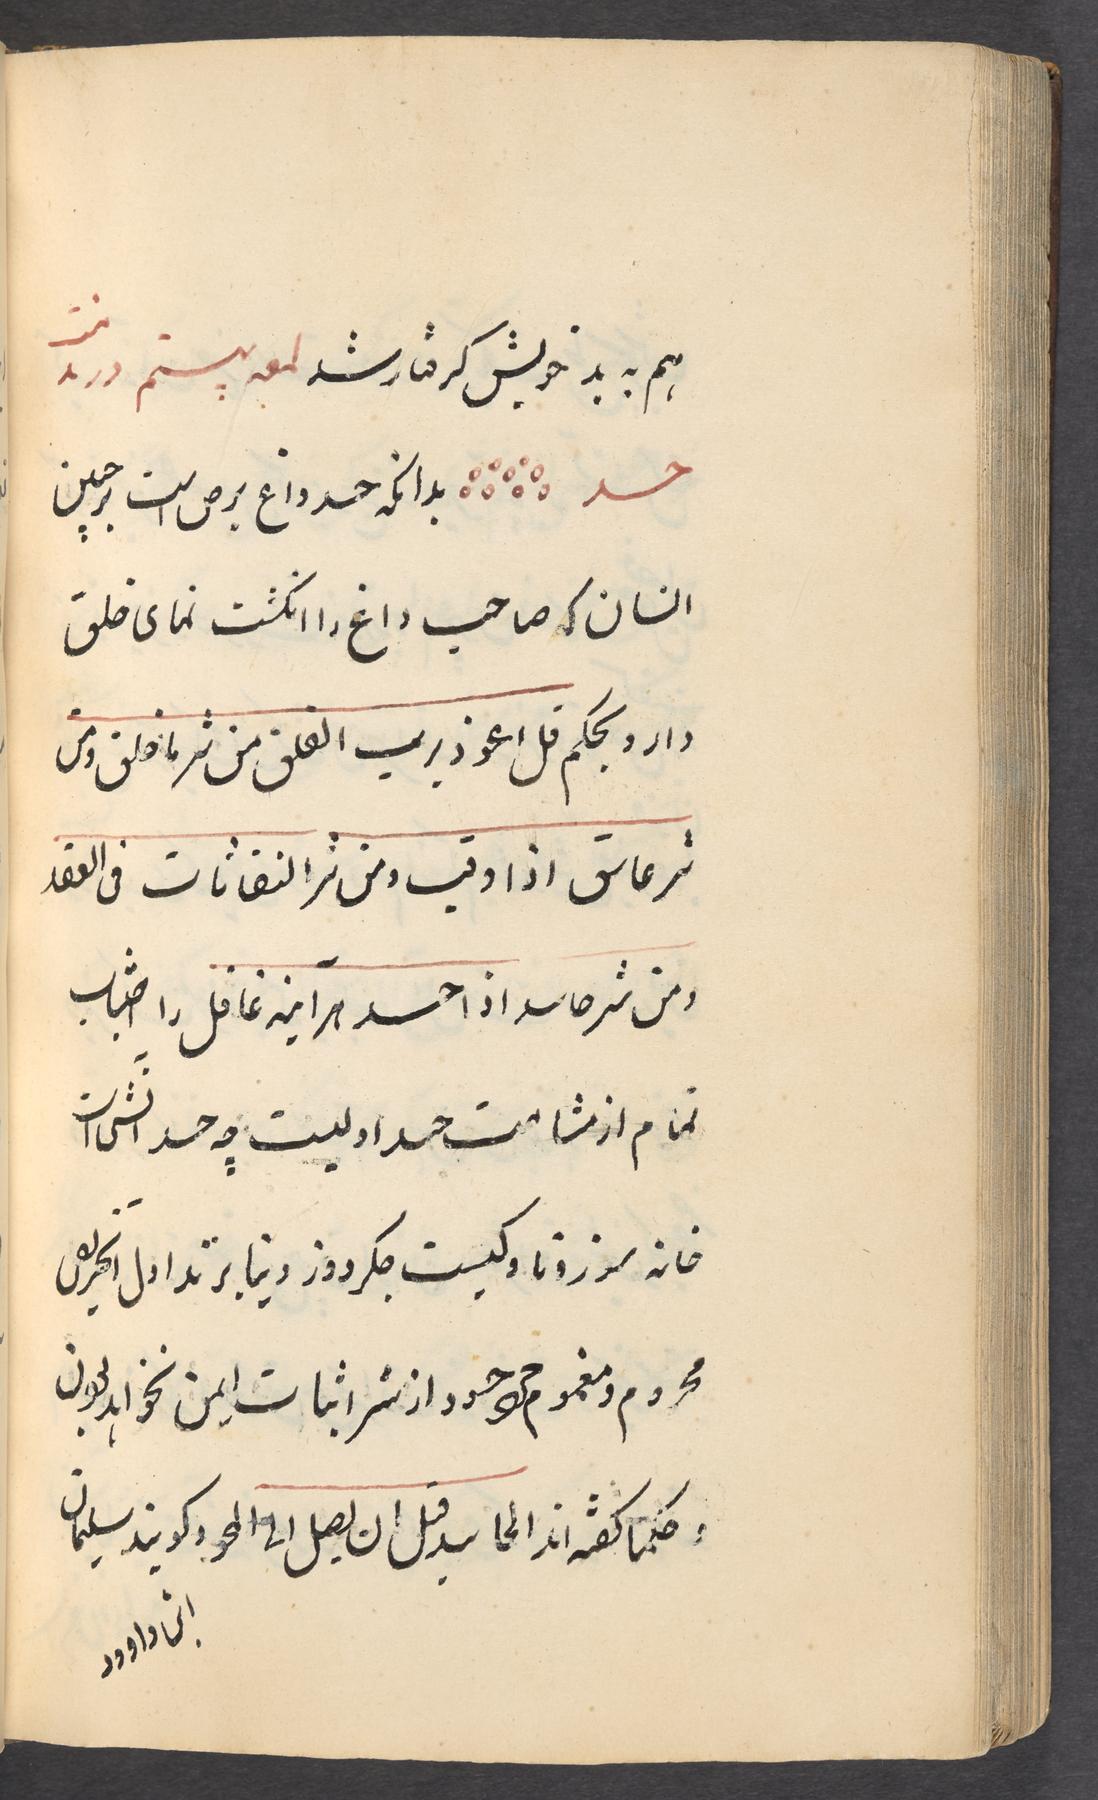 هم به بد خویش کرفتار شد لمعه بیستم در مذمت
حسد بدانکه حسد داغ برص است بر جبین
انسان که صاحب داغ را انکشت نمای خلق
دارد بحکم قل اعوذ برب الفلق من شر ما خلق و من
شر غاسق اذا وقب و من شر النفاثات فی العقد
و من شر حاسد اذا حسد هر آینه غافل را اجتناب
تمام از مشامت حسد اولیست چه حسد آتشی است
خانه سوز و ناوکیست جکر دوز دنیا برند اول
محروم و مغموم حسود از شر ایمن نخواهد بود
و حکما کفته اند الحاسد قتل ان یصل الی المحسود کویند سلیمان
ابن داوود